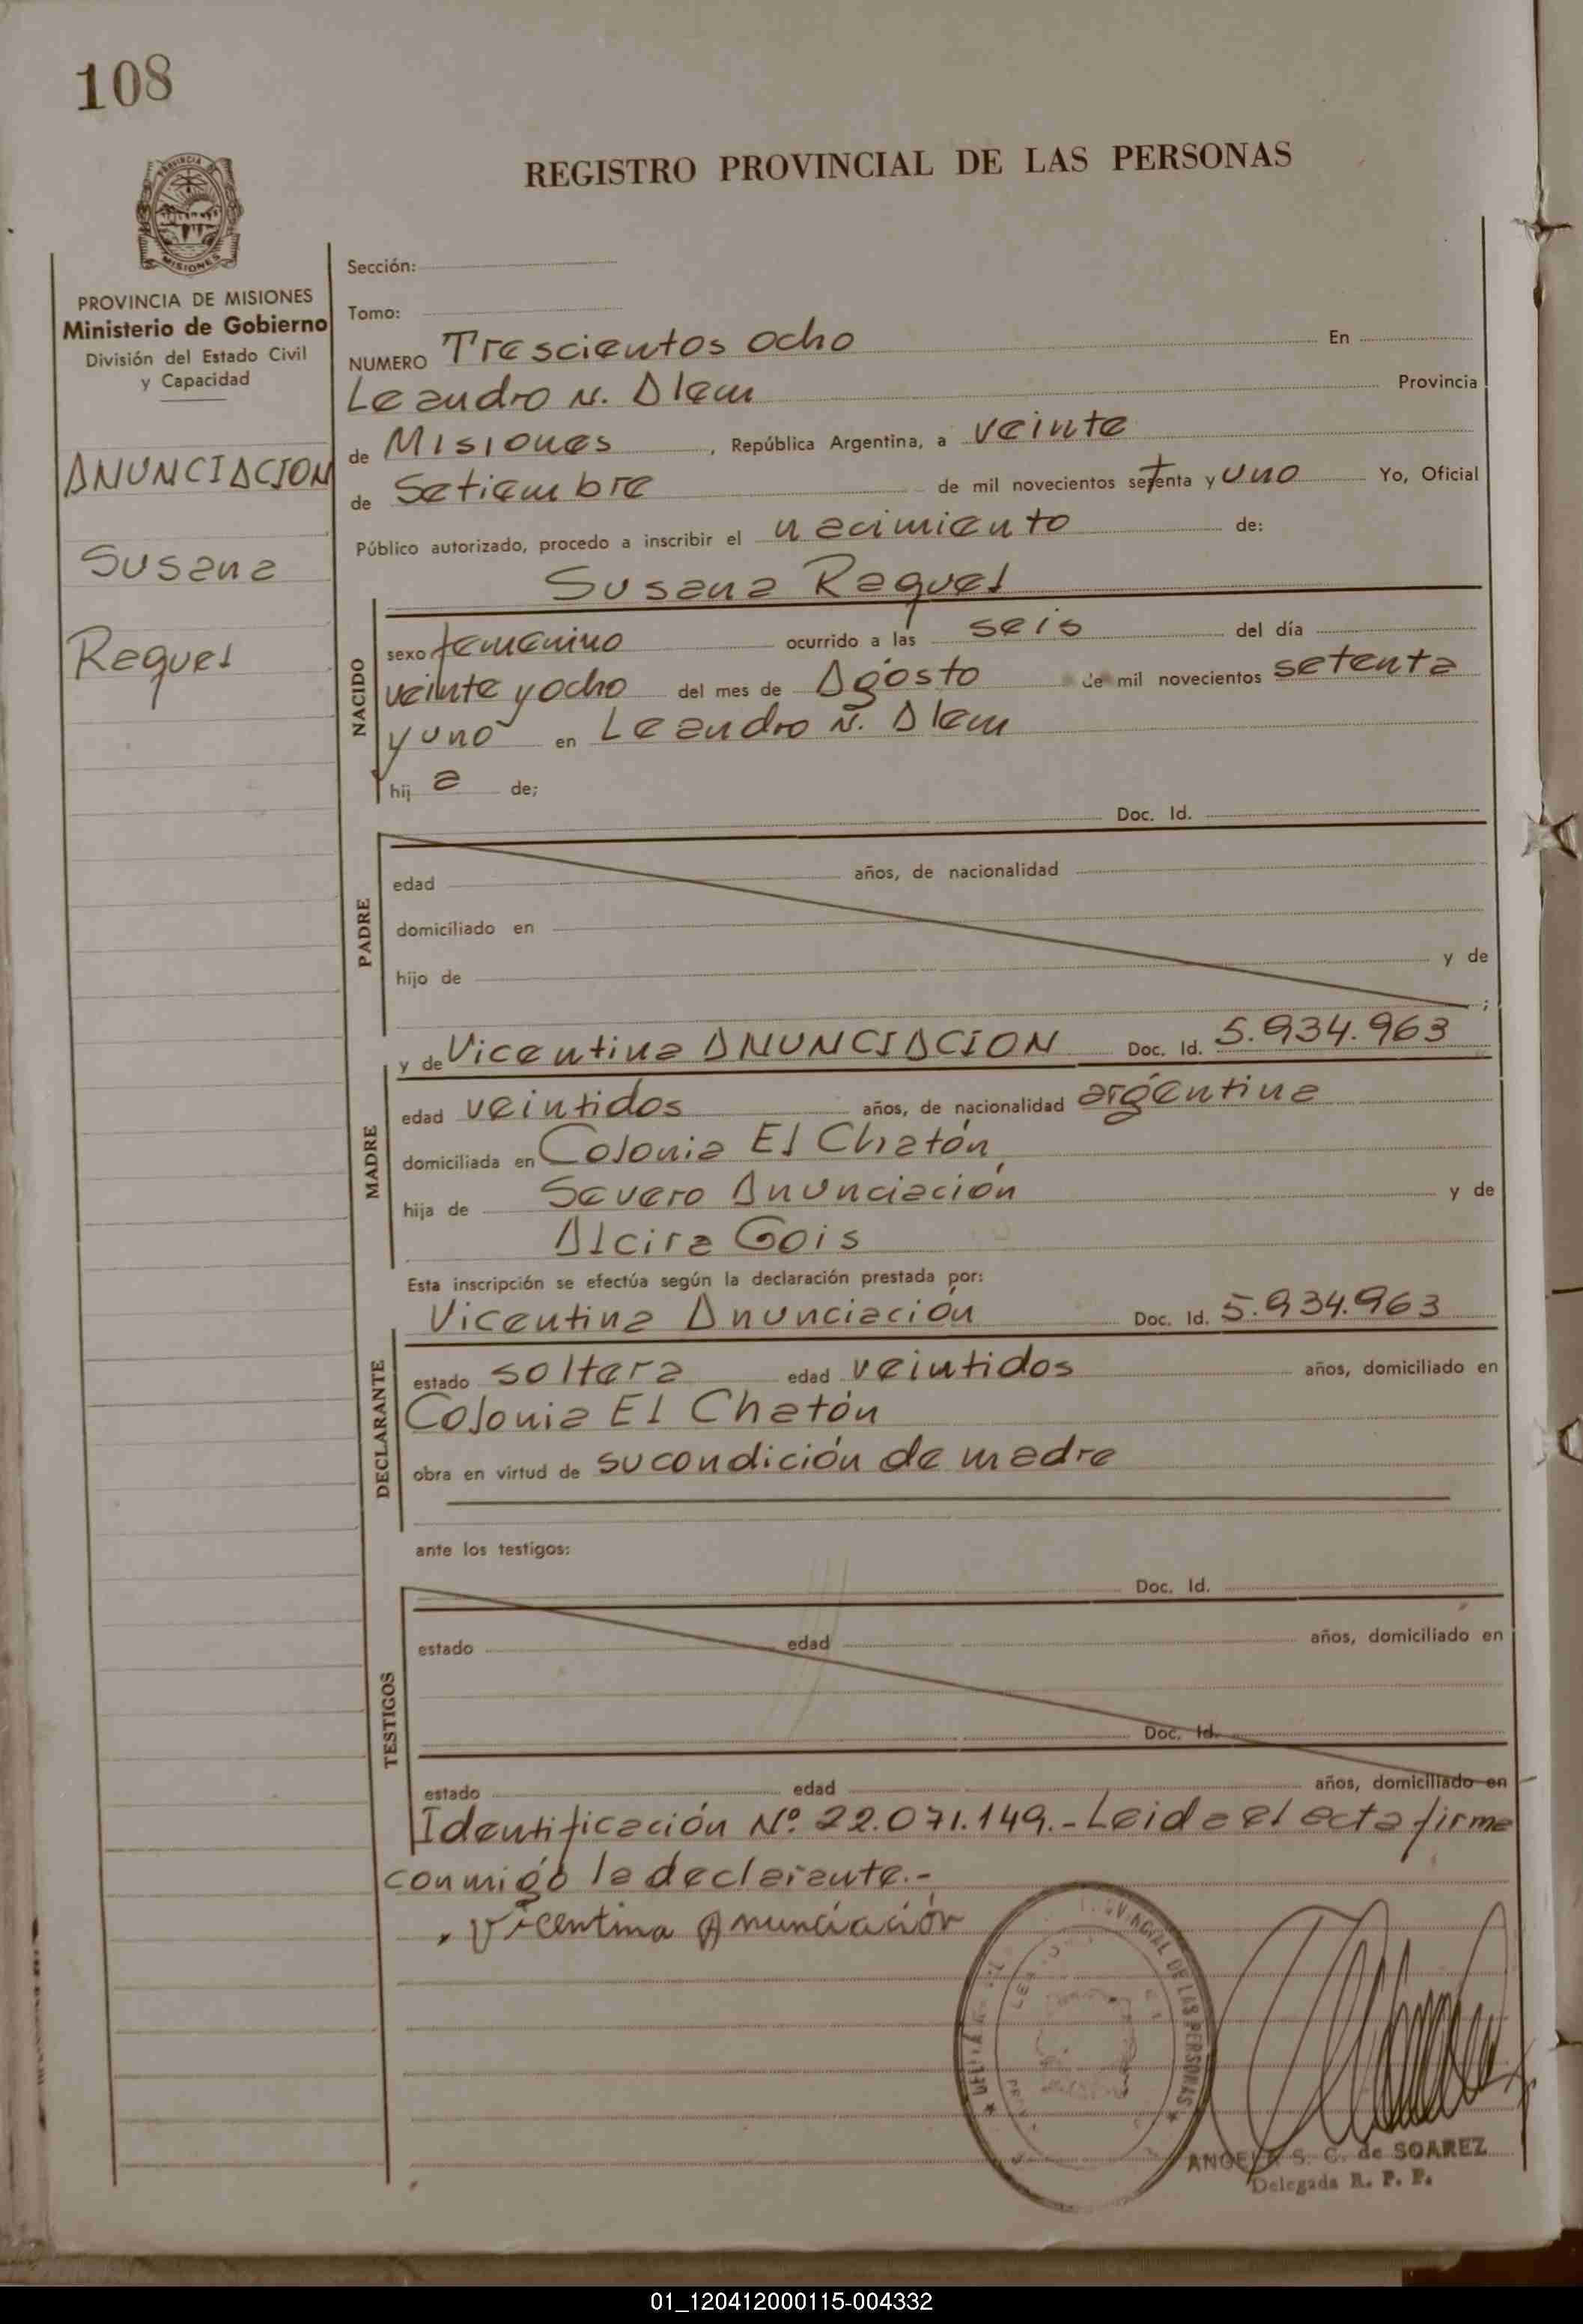 108
REGISTRO PROVINCIAL DE LAS PERSONAS
PROVINCIA
MISIONES
PROVINCIA DE MISIONES
Ministerio de Gobierno
División del Estado Civil
y Capacidad
ANUNCIACION
Susana
Raquel
Sección:
Tomo:
NUMERO Trescientos ocho En
Leandro N. Alem Provincia
de Misiones, República Argentina, a veinte
de Setiembre de mil novecientos setenta y uno Yo, Oficial
Público autorizado, procedo a inscribir el nacimiento de:
Susana Raquel
NACIDO
sexo femenino ocurrido a las seis del día
veinte y ocho del mes de Agosto de mil novecientos setenta
y uno en Leandro N. Alem
hij a de;
Doc. Id.
PADRE
edad años, de nacionalidad
domiciliado en
hijo de y de
;
y de Vicentina ANUNCIACION Doc. Id. 5.934.963
MADRE
edad veintidos años, de nacionalidad argentina
domiciliada en Colonia El Chatón,
hija de Severo Anunciación y de
Alcira Gois
Esta inscripción se efectúa según la declaración prestada por:
Vicentina Anunciación Doc. Id. 5.934.963
DECLARANTE
estado soltera edad veintidos años, domiciliado en
Colonia El Chatón
obra en virtud de su condición de madre
ante los testigos:
Doc. Id.
TESTIGOS
estado edad años, domiciliado en
Doc. Id.
estado edad años, domiciliado en
Identificación Nº 22.071.149.- Leida el acta firma
conmigo la declarante.-
Vicentina Anunciación
DE LAS PERSONAS
ANGELA S. C. de SOAREZ
Delegada R. P. P.
01_120412000115-004332